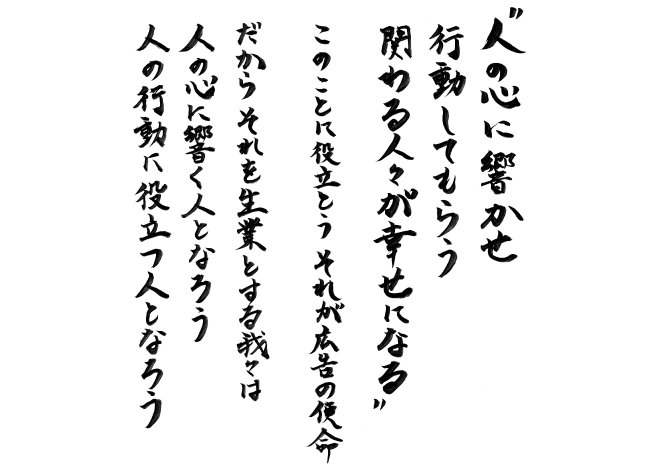 〝人の心に響かせ
行動してもらう
関わる人々が幸せになる〟
このことに役立とう それが広告の使命
だから それを生業とする我々は
人の心に響く人となろう
人の行動に役立つ人となろう